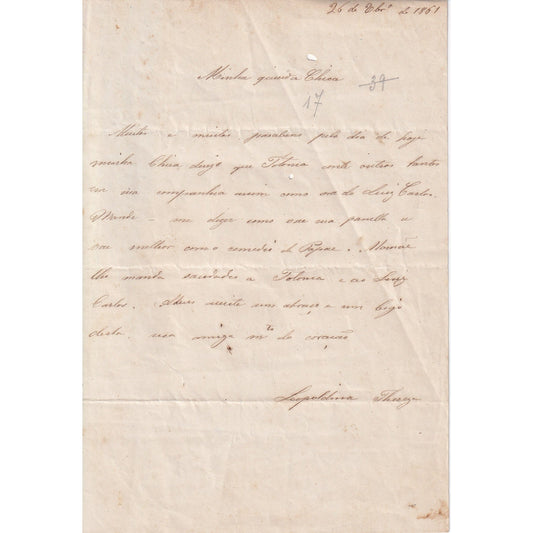 26 de Fbrº de 1861
Minha querida Chica
39
17
Muitos e muitos parabens pelo dia de hoje
minha Chica desejo que Totonia conte outros tantos
em sua companhia assim como na do Luiz Carlos.
Mande-me dizer como vae sua
vae melhor com o remedio do Papae. Mamãe
lhe manda saudades a Totonia e ao Luiz
Carlos. Adeus aceite um abraço e um beijo
desta sua amiga mto do coração
Leopoldina Thereza